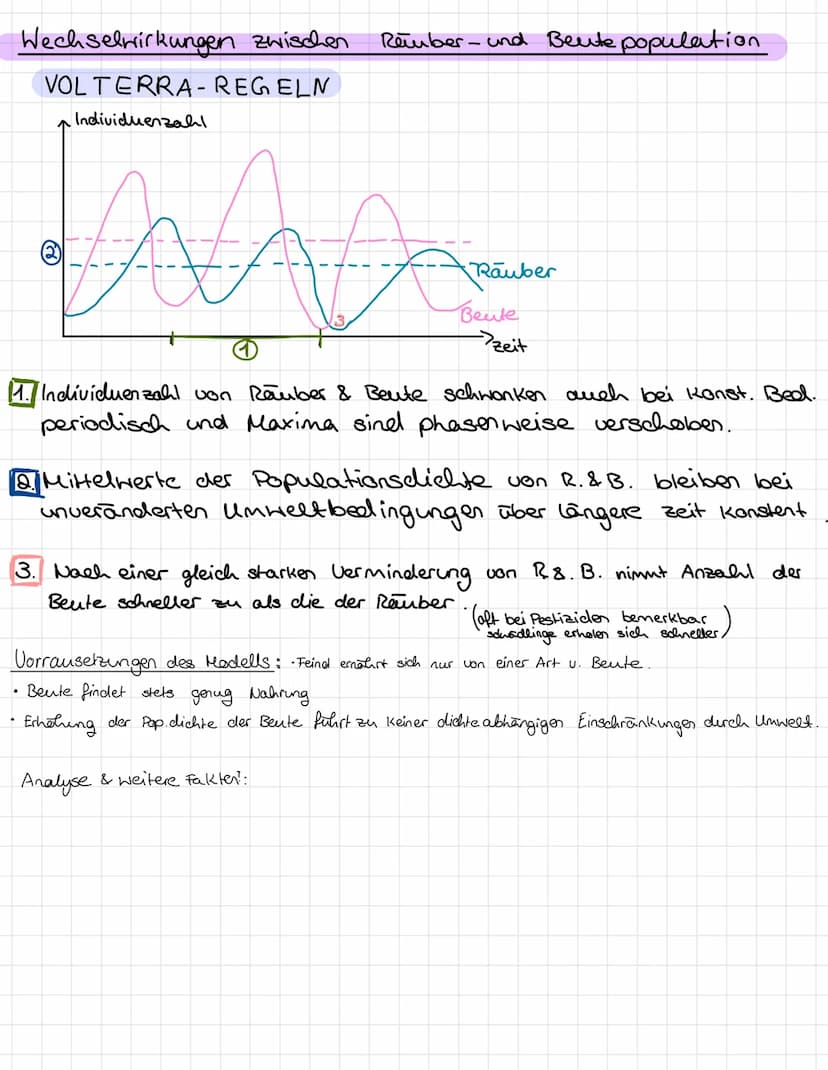 Wechselwirkungen zwischen Räuber- und Beutepopulation
VOLTERRA-REGELN
Individuenzahl
2
Räuber
3
Beute
1
Zeit
1. Individuenzahl von Räuber & Beute schwanken auch bei Konst. Bed.
periodisch und Maxima sind phasenweise verschoben.
2. Mittelwerte der Populationsdichte von R. & B. bleiben bei
unveränderten Umweltbedingungen über längere Zeit Konstant
3. Nach einer gleich starken Verminderung von R & B. nimmt Anzahl der
Beute schneller zu als die der Räuber.
(oft bei Pestiziden bemerkbar
schädlinge erholen sich schneller)
Vorrausetzungen des Modells: · Feind ernährt sich nur von einer Art v. Beute.
· Beute findet stets genug Nahrung
· Erhöhung der Pop.dichte der Beute führt zu Keiner dichteabhängigen Einschränkungen durch Umwelt.
Analyse & weitere Fakten: